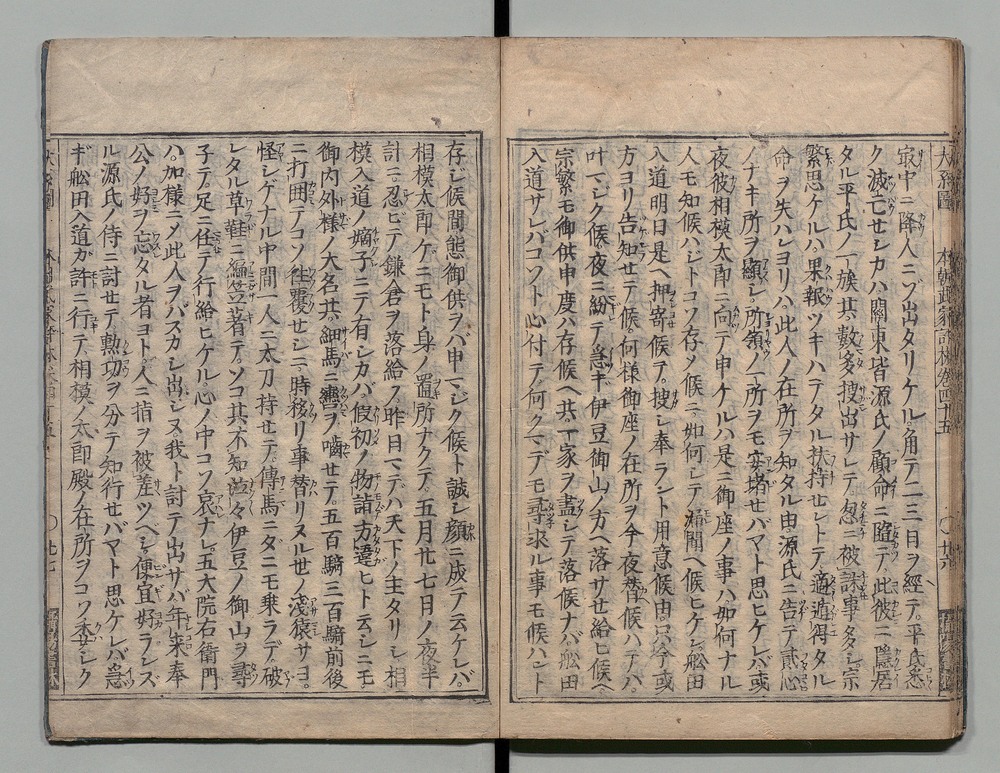 寂中ニ降人ニゾ出タリケル。角テ二三日ヲ經テ。平氏悉
ク滅亡せシカハ關東皆源氏ノ顧命ニ隨テ此彼ニ隱居
タル平氏ノ一族共。數多捜出サレテ。忽ニ被誅事多シ。宗
繁思ケルハ果報ツキハテタル扶持せントテ。適遁得タル
命ヲ失ハレヨリハ此人ノ在所ヲ知タル由源氏ニ告テ貳心
ノナキ所ヲ顯シ。所領ノ一所ヲモ安堵せバマト思ヒケレバ或
夜彼相模太郎ニ向テ申ケルハ是ニ御座ノ事ハ如何ナル
人モ知候ハジトコソ存メ候ニ如何シテ漏聞ヘ候ヒケン。舩田
入道明日是ヘ押寄候テ。捜シ奉ラント用意候由。只今或
方ヨリ告知せテ候。何様御座ノ在所ヲ今夜替候ハテハ。
叶マジク候夜ニ紛テ急ギ伊豆御山ノ方ヘ落サせ給ヒ候ヘ
宗繁モ御供申度ハ存候ヘ共一家ヲ盡シテ落候ナバ。舩田
入道サレバコソト心付テ。何クマデモ尋求ル事モ候ハント
存ジ候間態御供ヲハ申マジク候ト誠シ顔ニ成テ云ケレバ。
相模太郎ゲニモト身ノ置所ナクテ。五月廿七日ノ夜半
計ニ。忍ビテ鎌倉ヲ落給フ。昨日マデハ天下ノ主タリシ相
模入道ノ嫡子ニテ有シカバ。假初ノ物詣方違ヒト云シニモ
御内外様ノ大名共。細馬ニ轡ヲ嚙せテ。五百騎三百騎前後
ニ打囲テコソ往覆せシニ。時移リ事替リヌル世ノ淺猿サヨ。
怪シゲナル中間一人ニ太刀持せテ。傳馬ニダニモ乗ラデ。破
レタル草鞋ニ編笠著テ。ソコ共不知泣々伊豆ノ御山ヲ尋
子テ。足ニ任テ行給ヒケル。心ノ中コソ哀ナレ。五大院右衛門
ハ。加様ニメ此人ヲバスカシ出シヌ我ト討テ出サハ年來奉
公ノ好ヲ忘タル者ヨト。人ニ指ヲ被差ツベシ。便宜好ランズ
ル源氏ノ侍ニ討せテ。勲功ヲ分テ知行せバマト思ケレバ急
ギ舩田入道ガ許ニ行テ相模ノ太郎殿ノ在所ヲコソ委シク